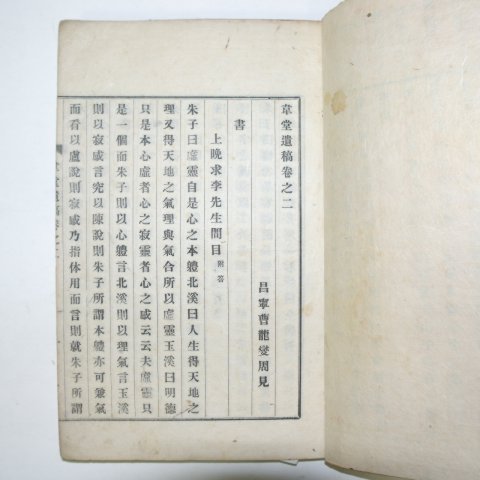 韋堂遺稿卷之二
昌寧曺龍燮周見
書
上晩求李先生問目 附答
朱子曰虛靈自是心之本體北溪曰人生得天地之
理又得天地之氣理與氣合所以虛靈玉溪曰明德
只是本心虛者心之寂靈者心之感云云夫虛靈只
是一個而朱子則以心體言北溪則以理氣言玉溪
則以寂感言究以陳說則朱子所謂本體亦可兼氣
而看以盧說則寂感乃指体用而言則就朱子所謂